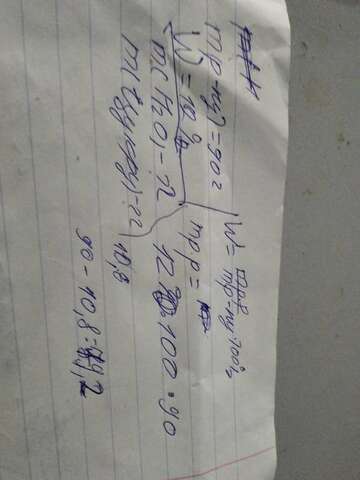 m(р-ну)=90г
W=12%
m(H₂O)-?
m(
W= mр.в / mр-ну · 100%
mр.р=
12:100·90
10,8
90-10,8=79,2